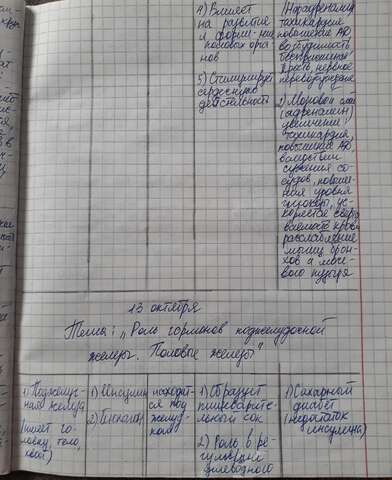 4) Влияет
на развитие
и форм-ние
половых орга
нов
5) Стимулирует
сердечную
деятельность
1) Норадреналин
тахикардия
повышение АД
возбудимость
ярость, нервное
перевозбуждение
(адреналин)
увеличение
тахикардия,
повышение АД
вследствии
сужения со-
судов, повыше-
ния уровня
глюкозы, ус-
коряется сверт
расслабление
мышц брон-
хов и моче-
вого пузыря
13 октября
Тема: „Роль гормонов поджелудочной
железы. Половые железы"
1) Поджелу-
ная железа
(имеет го-
ловку, тело,
хвост)
1) Инсулин
2) Глюкагон
находит-
ся под
желуд-
ком
1) Образует
пищеварите-
льный сок
2) Роль в ре-
гуляции
углеводного
1) Сахарный
диабет
(недостаток
инсулина)